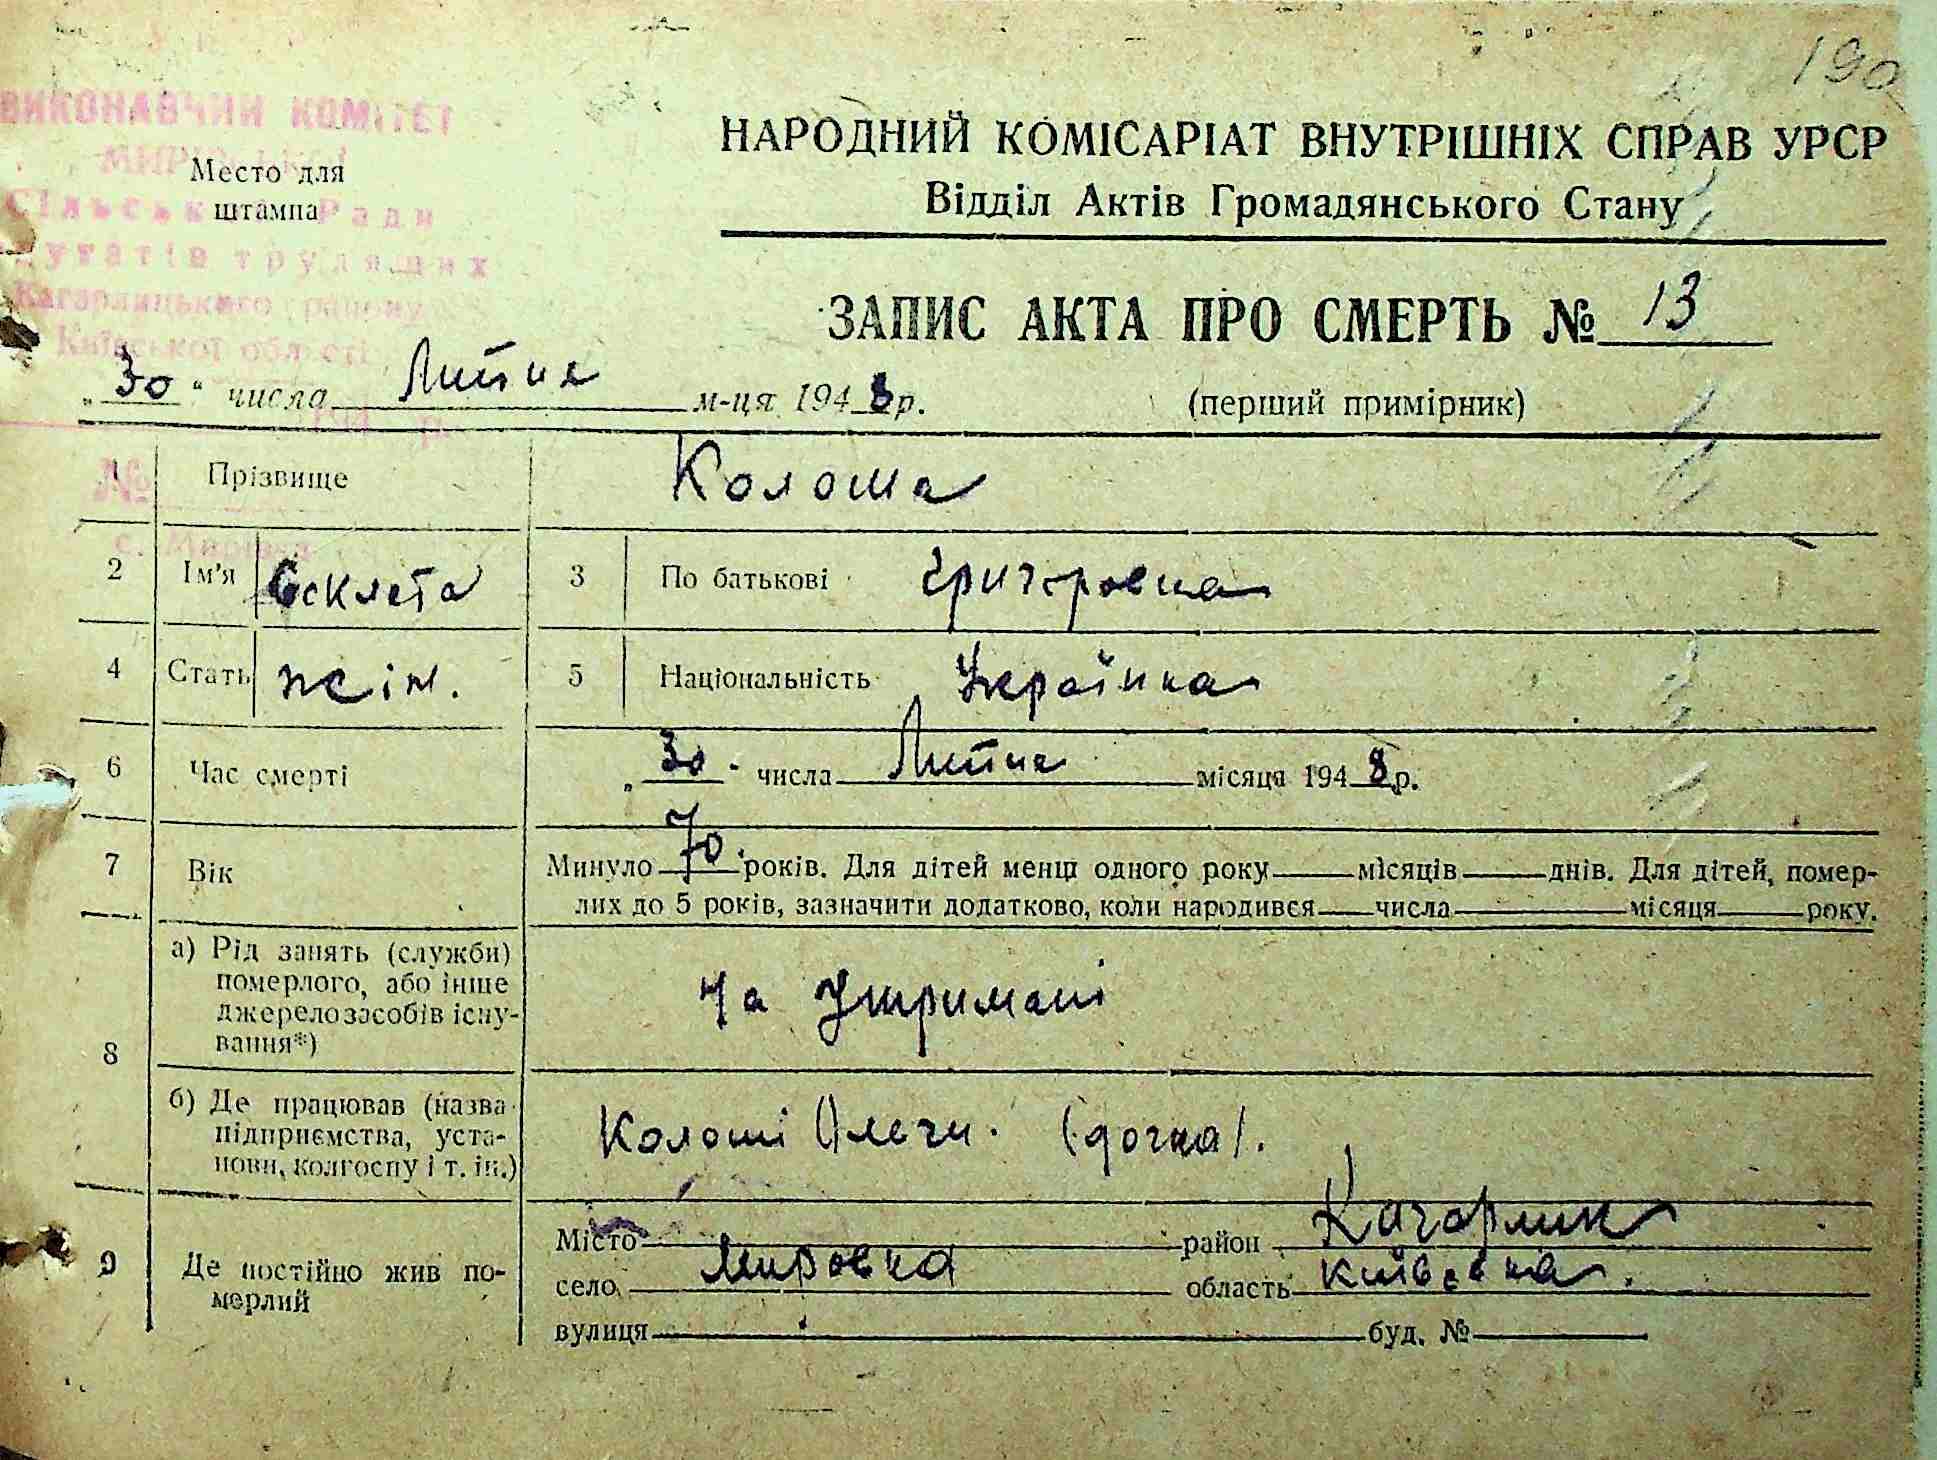 190
ВИКОНАВЧИЙ КОМІТЕТ
Место для
штампа
Сільської Ради
депутатів трудящих
Кагарлицького району
Київської області
с. Мирівка
№
НАРОДНИЙ КОМІСАРІАТ ВНУТРІШНІХ СПРАВ УРСР
Відділ Актів Громадянського Стану
ЗАПИС АКТА ПРО СМЕРТЬ № 13
„30“ числа Липня м-ця 1948 р.
(перший примірник)
1 Прізвище Колоша
2 Ім'я Секлета 3 По батькові Григоровна
4 Стать жін. 5 Національність Українка
6 Час смерті „30“ числа Липня місяца 1948 р.
7 Вік Минуло 70 років. Для дітей менш одного року місяців днів. Для дітей, помер-
лих до 5 років, зазначити додатково, коли народився числа місяця року.
8 а) Рід занять (служби)
померлого, або інше
джерело засобів існу-
вання*)
На Утримані
б) Де працював (назва
підприємства, уста-
нови, колгоспу і т. ін.)
Колоші Олени. (дочка).
9 Де постійно жив по-
мерлий
Місто район Кагарлик
село Мировка область Київська.
вулиця буд. №